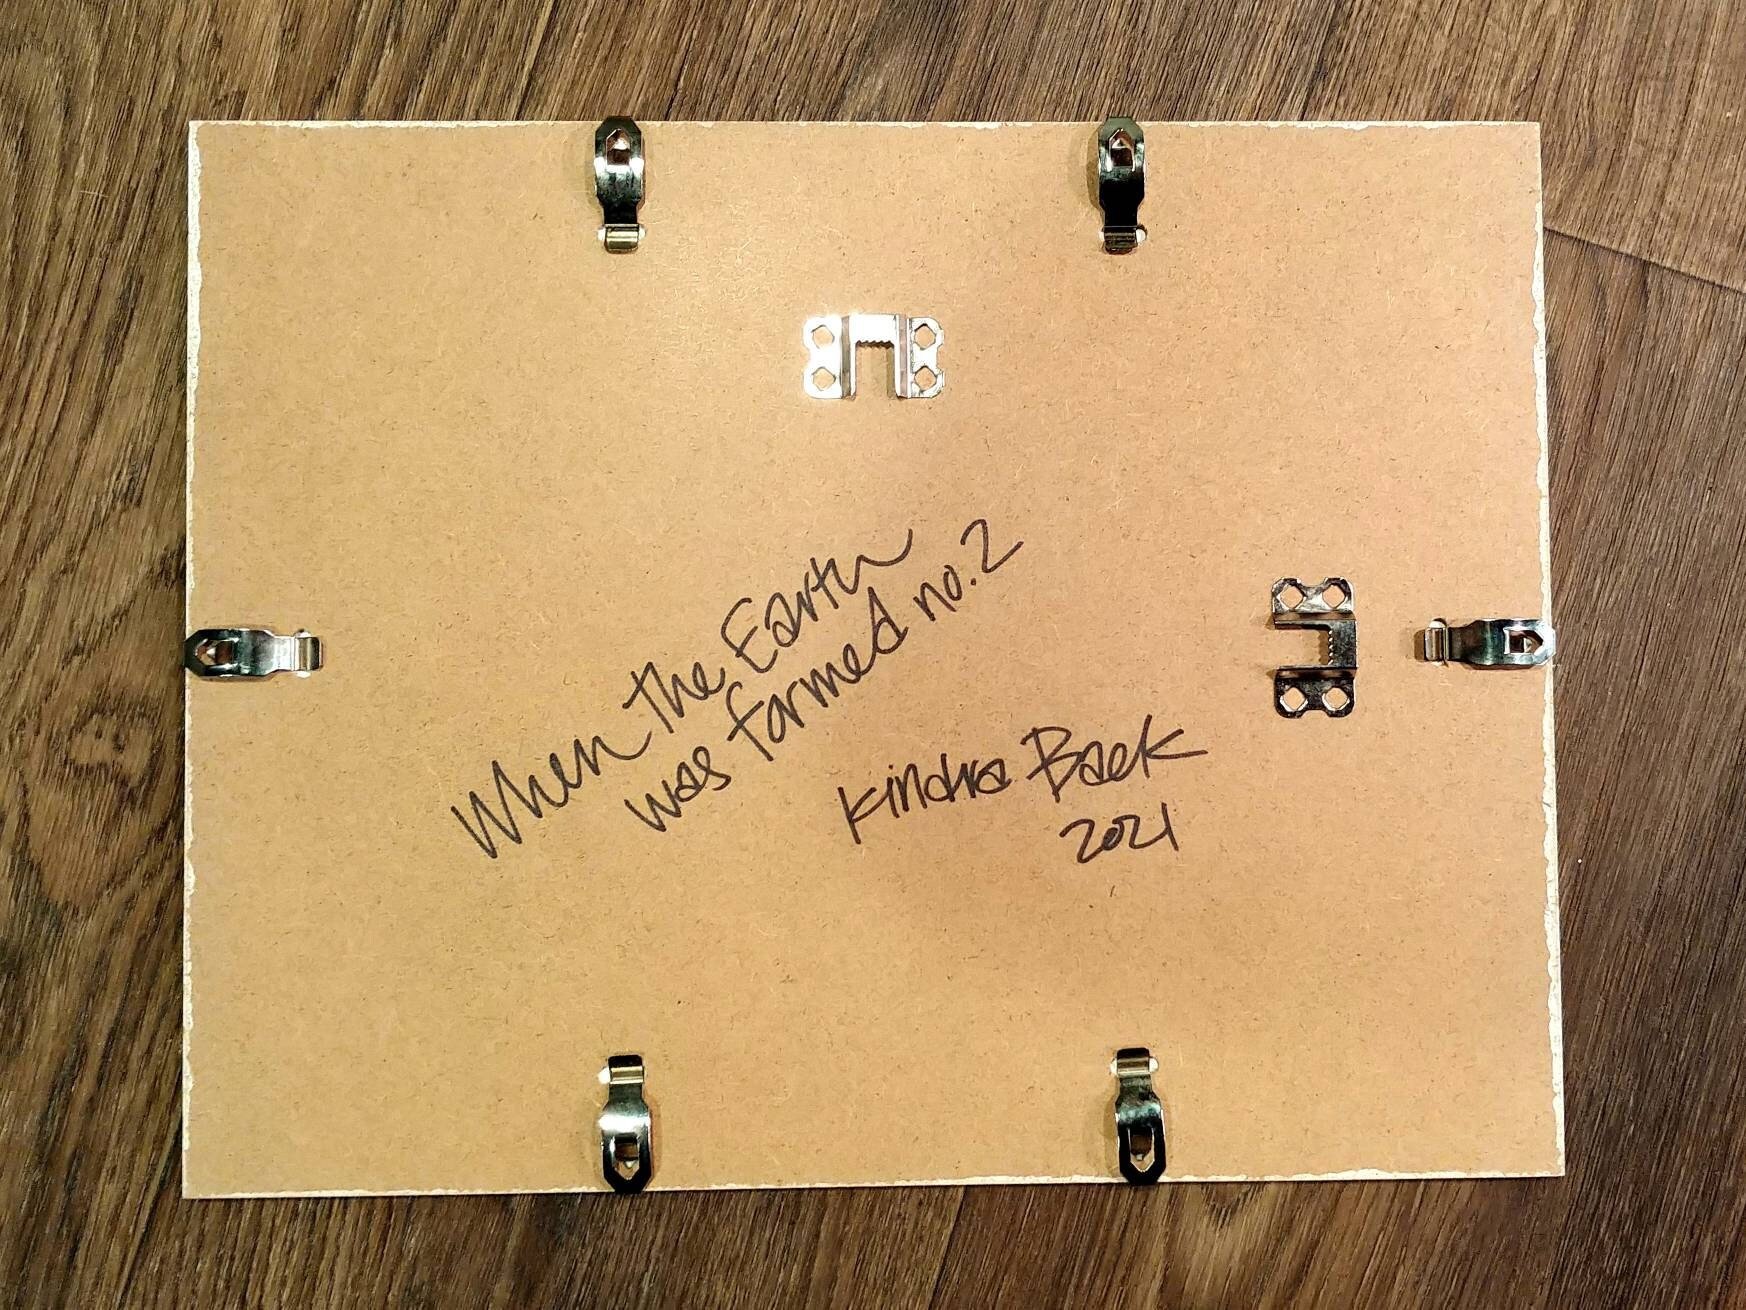 When the Earth
was formed no. 2
Kindra Baek
2021